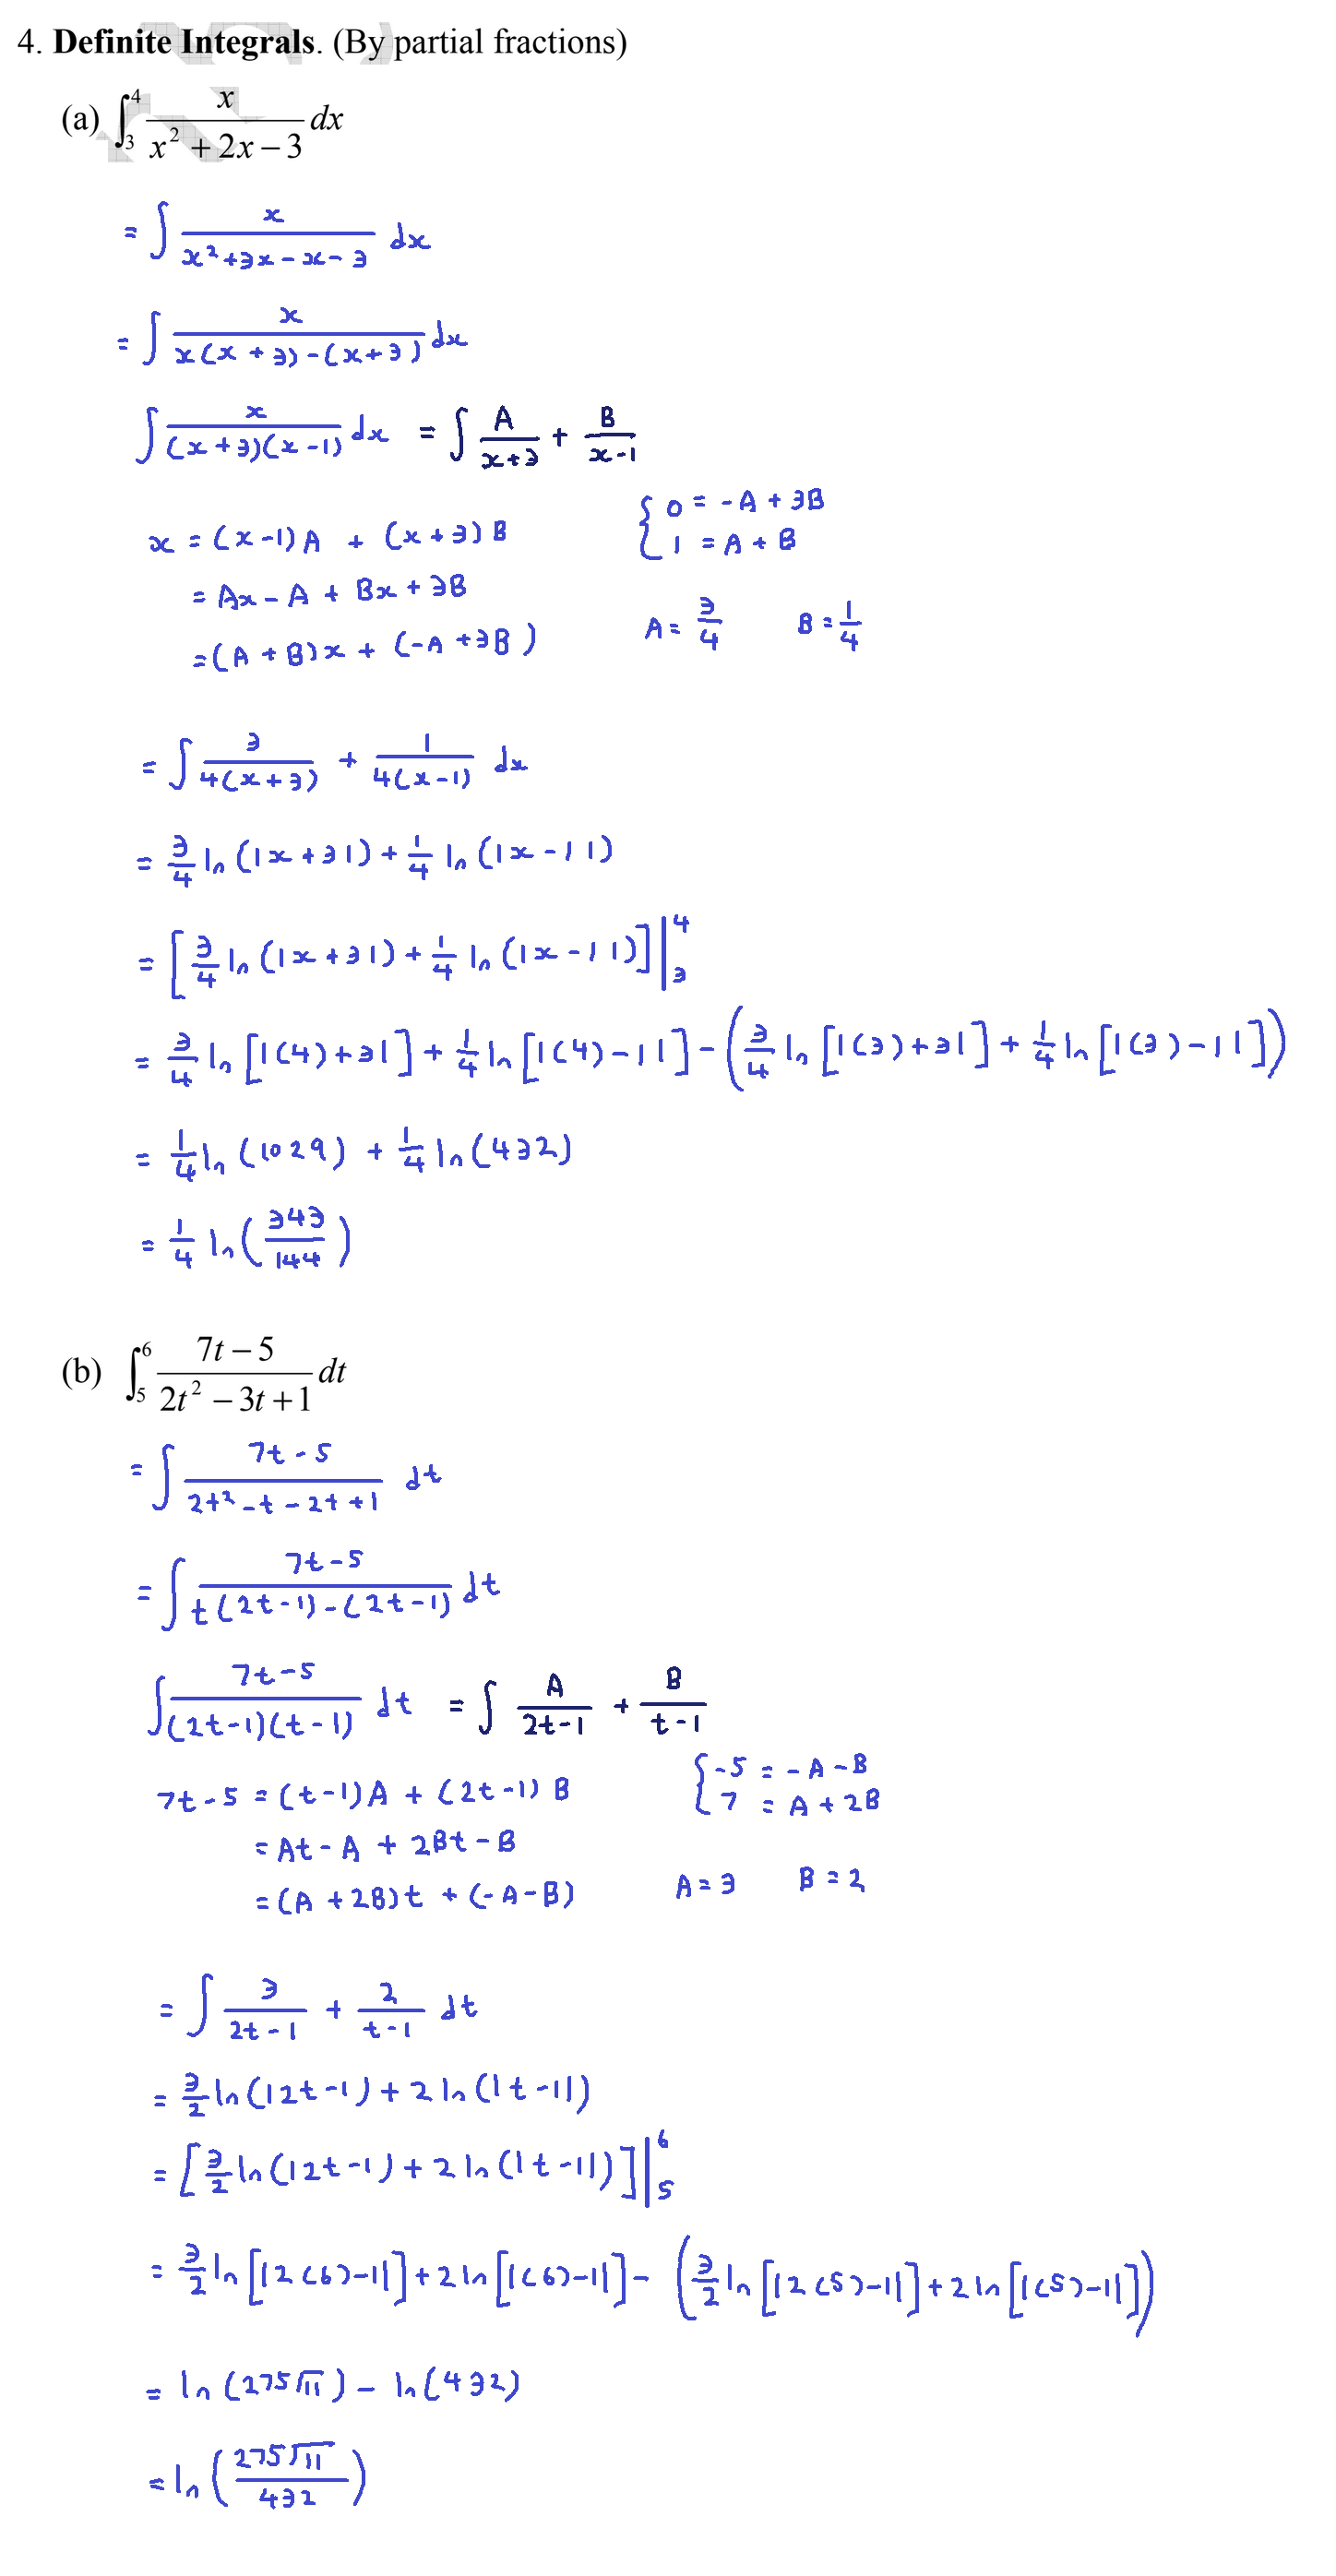 4. Definite Integrals. (By partial fractions)
(a) ∫₃⁴ x/(x² + 2x − 3) dx
= ∫ x/(x²+3x−x−3) dx
= ∫ x/(x(x+3)−(x+3)) dx
∫ x/((x+3)(x−1)) dx = ∫ A/(x+3) + B/(x−1)
x = (x−1)A + (x+3)B
= Ax − A + Bx + 3B
= (A+B)x + (−A+3B)
{ 0 = −A + 3B
1 = A + B
A = 3/4 B = 1/4
= ∫ 3/(4(x+3)) + 1/(4(x−1)) dx
= 3/4 ln(|x+3|) + 1/4 ln(|x−1|)
= [3/4 ln(|x+3|) + 1/4 ln(|x−1|)]|₃⁴
= 3/4 ln[|(4)+3|] + 1/4 ln[|(4)−1|] − (3/4 ln[|(3)+3|] + 1/4 ln[|(3)−1|])
= 1/4 ln(1029) + 1/4 ln(432)
= 1/4 ln(343/144)
(b) ∫₅⁶ (7t − 5)/(2t² − 3t + 1) dt
= ∫ (7t−5)/(2t²−t−2t+1) dt
= ∫ (7t−5)/(t(2t−1)−(2t−1)) dt
∫ (7t−5)/((2t−1)(t−1)) dt = ∫ A/(2t−1) + B/(t−1)
7t−5 = (t−1)A + (2t−1)B
= At − A + 2Bt − B
= (A+2B)t + (−A−B)
{ −5 = −A−B
7 = A+2B
A = 3 B = 2
= ∫ 3/(2t−1) + 2/(t−1) dt
= 3/2 ln(|2t−1) + 2 ln(|t−1|)
= [3/2 ln(|2t−1) + 2 ln(|t−1|)]|₅⁶
= 3/2 ln[|2(6)−1|] + 2 ln[|(6)−1|] − (3/2 ln[|2(5)−1|] + 2 ln[|(5)−1|])
= ln(275√11) − ln(432)
= ln(275√11/432)